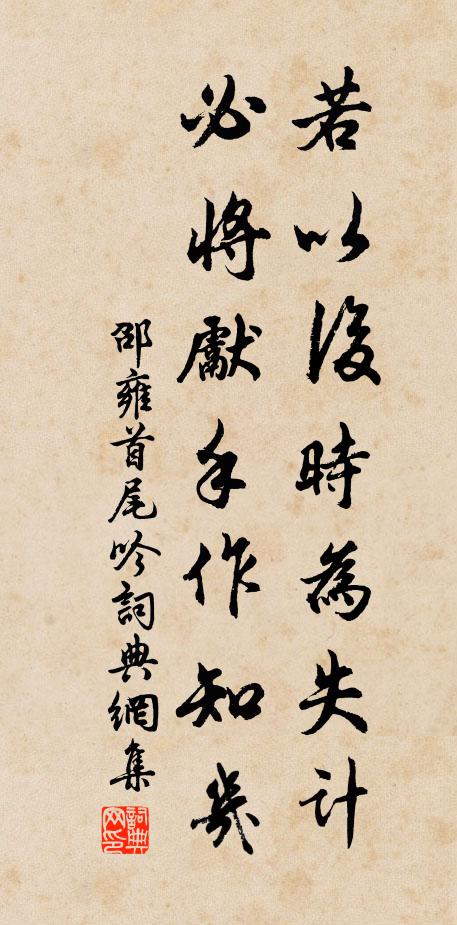 若以後時為失計
必將獻手作知幾
邵雍首尾吟詞典網集
詞典網印